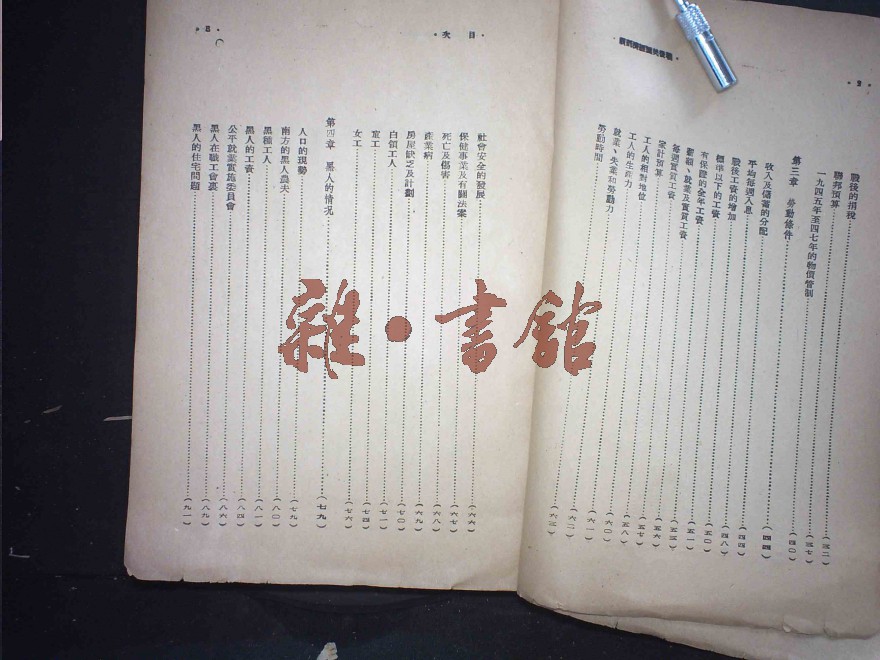 戰後的捐稅⋯⋯(三二)
聯邦預算
一九四五年至四七年的物價管制⋯⋯(三七)
第三章 勞動條件⋯⋯(四〇)
收入及儲蓄的分配⋯⋯(四四)
平均每週入息⋯⋯(四四)
戰後工資的增加⋯⋯(四八)
標準以下的工資⋯⋯(五〇)
有保證的全年工資⋯⋯(五一)
就業及實質工資
每週實質工資
家計預算
工人的相對地位⋯⋯(五七)
工人的生產力⋯⋯(五八)
就業、失業和勞動力⋯⋯(六〇)
勞動時間
目次
社會安全的發展⋯⋯(六六)
保健事業及有關法案⋯⋯(六七)
死亡及傷害⋯⋯(六八)
產業病⋯⋯(六九)
房屋缺乏及計劃⋯⋯(七〇)
白領工人⋯⋯(七一)
童工⋯⋯(七四)
女工⋯⋯(七六)
第四章 黑人的情况⋯⋯(七九)
人口的現勢⋯⋯(七九)
南方的黑人農夫⋯⋯(八〇)
黑種工人⋯⋯(八一)
黑人的工資⋯⋯(八四)
公平就業實施委員會⋯⋯(八六)
黑人在職工會裏⋯⋯(八九)
黑人的住宅問題⋯⋯(九一)
雜·書館